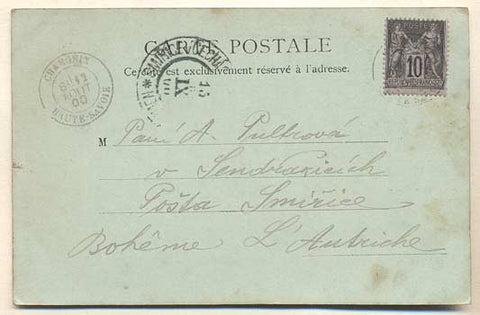 CARTE POSTALE
Ce côté est exclusivement réservé à l'adresse.
CHAMONIX
11
AOUT
00
HAUTE-SAVOIE
SMIŘICE V ČECHÁCH
15
IX
10
M Paní A. Pultrová
v Sendražicích
Pošta Smiřice
Bohême L'Autriche